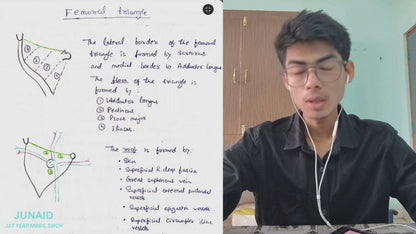 Femoral triangle
The lateral border of the femoral
triangle is formed by Sartorius
and medial border is Adductor longus
The floor of the triangle is
formed by :
① Adductor longus
② Pectineus
③ Psoas major
④ Iliacus.
The roof is formed by:
• Skin
• Superficial & deep fascia
• Great saphenous vein
• Superficial external pudendal
vessels
• Superficial epigastric vessels
• Superficial circumflex iliac
vessels
JUNAID
1ST YEAR MBBS, SMCH